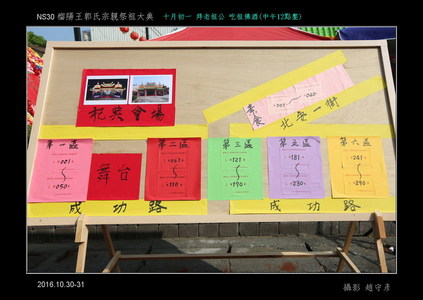 NS30 榴陽王郭氏宗親祭祖大典 十月初一 拜老祖公 吃祖佛酒(中午12點整)
素食
001
060
祀典會場
北安一街
第一區
第二區
第三區
第五區
第六區
001
050
舞台
061
110
121
190
181
230
241
290
成功路
成功路
2016.10.30-31
攝影 趙守彥